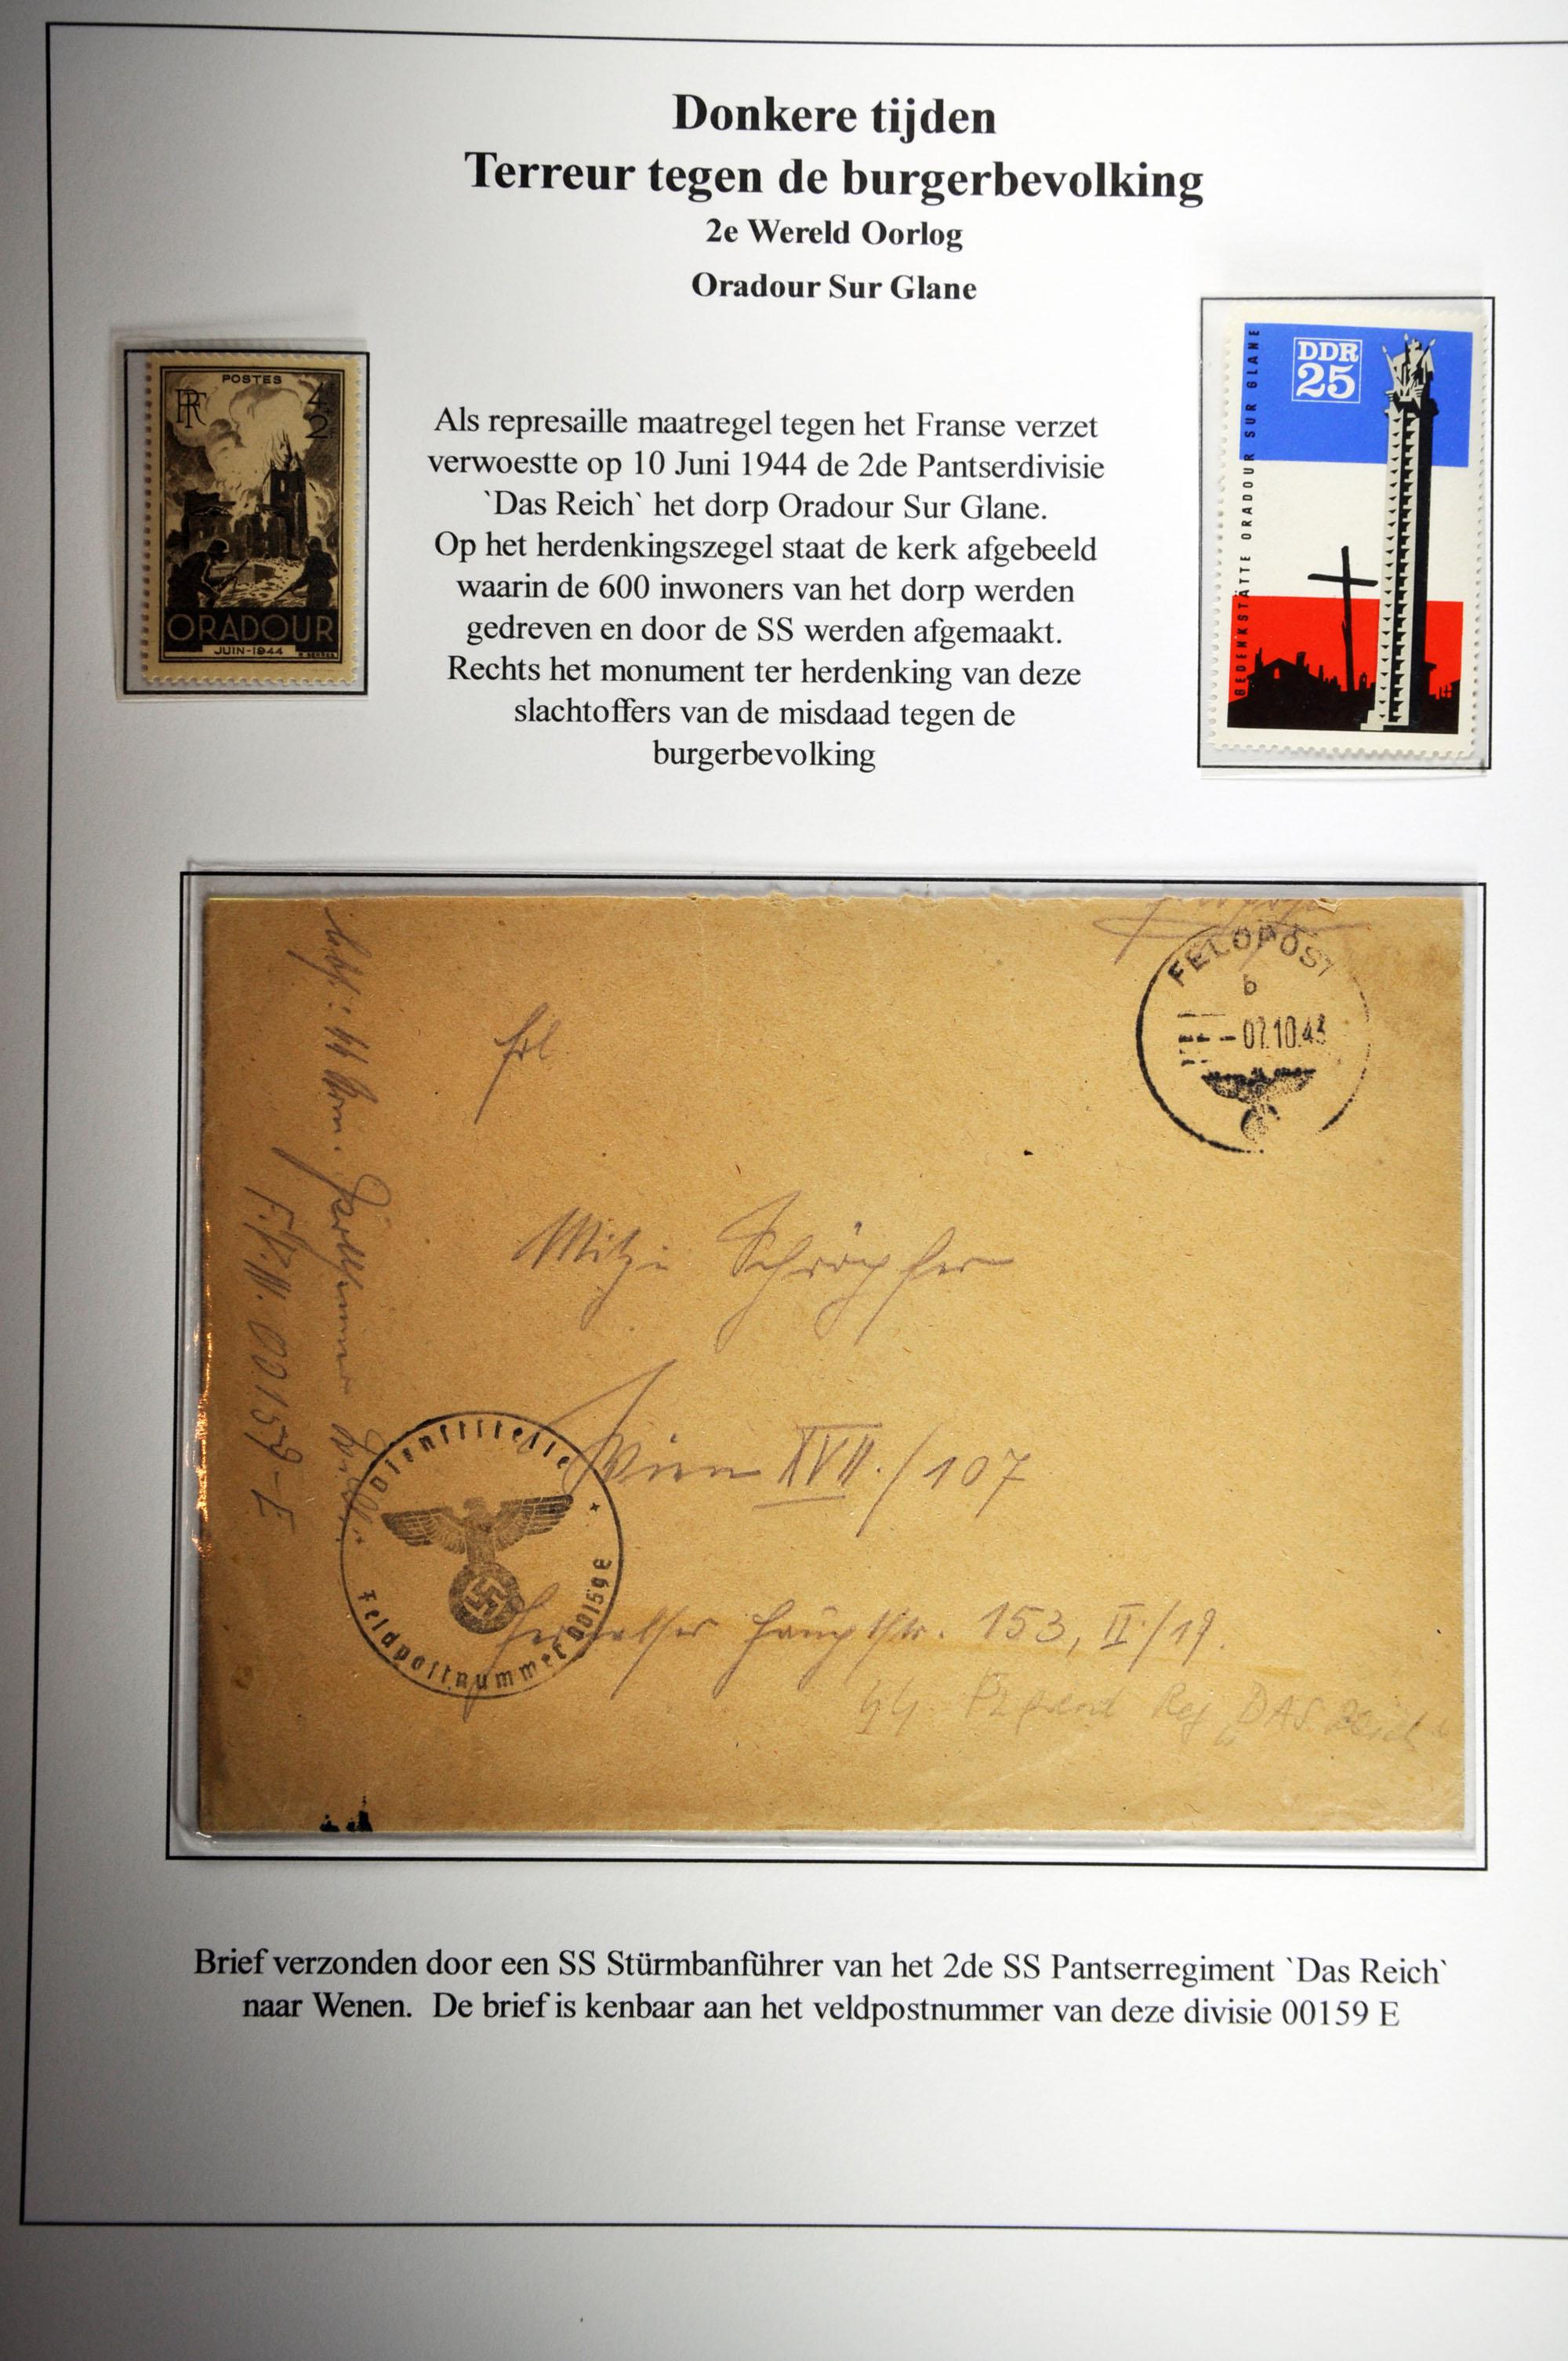 Donkere tijden
Terreur tegen de burgerbevolking
2e Wereld Oorlog
Oradour Sur Glane
POSTES
RF
4F
2F
ORADOUR
JUIN-1944
DDR
25
GEDENKSTÄTTE ORADOUR SUR GLANE
Als represaille maatregel tegen het Franse verzet
verwoestte op 10 Juni 1944 de 2de Pantserdivisie
`Das Reich` het dorp Oradour Sur Glane.
Op het herdenkingszegel staat de kerk afgebeeld
waarin de 600 inwoners van het dorp werden
gedreven en door de SS werden afgemaakt.
Rechts het monument ter herdenking van deze
slachtoffers van de misdaad tegen de
burgerbevolking
FELDPOST
b
-07.10.43
Frl
Mitzi Schröpfer
Wien XVII./107
Hernalser Hauptstr. 153, II/19.
F.P.N. 00159-E
Dienststelle
Feldpostnummer 00159E
Reg „DAS Reich“
Brief verzonden door een SS Stürmbanführer van het 2de SS Pantserregiment `Das Reich`
naar Wenen. De brief is kenbaar aan het veldpostnummer van deze divisie 00159 E